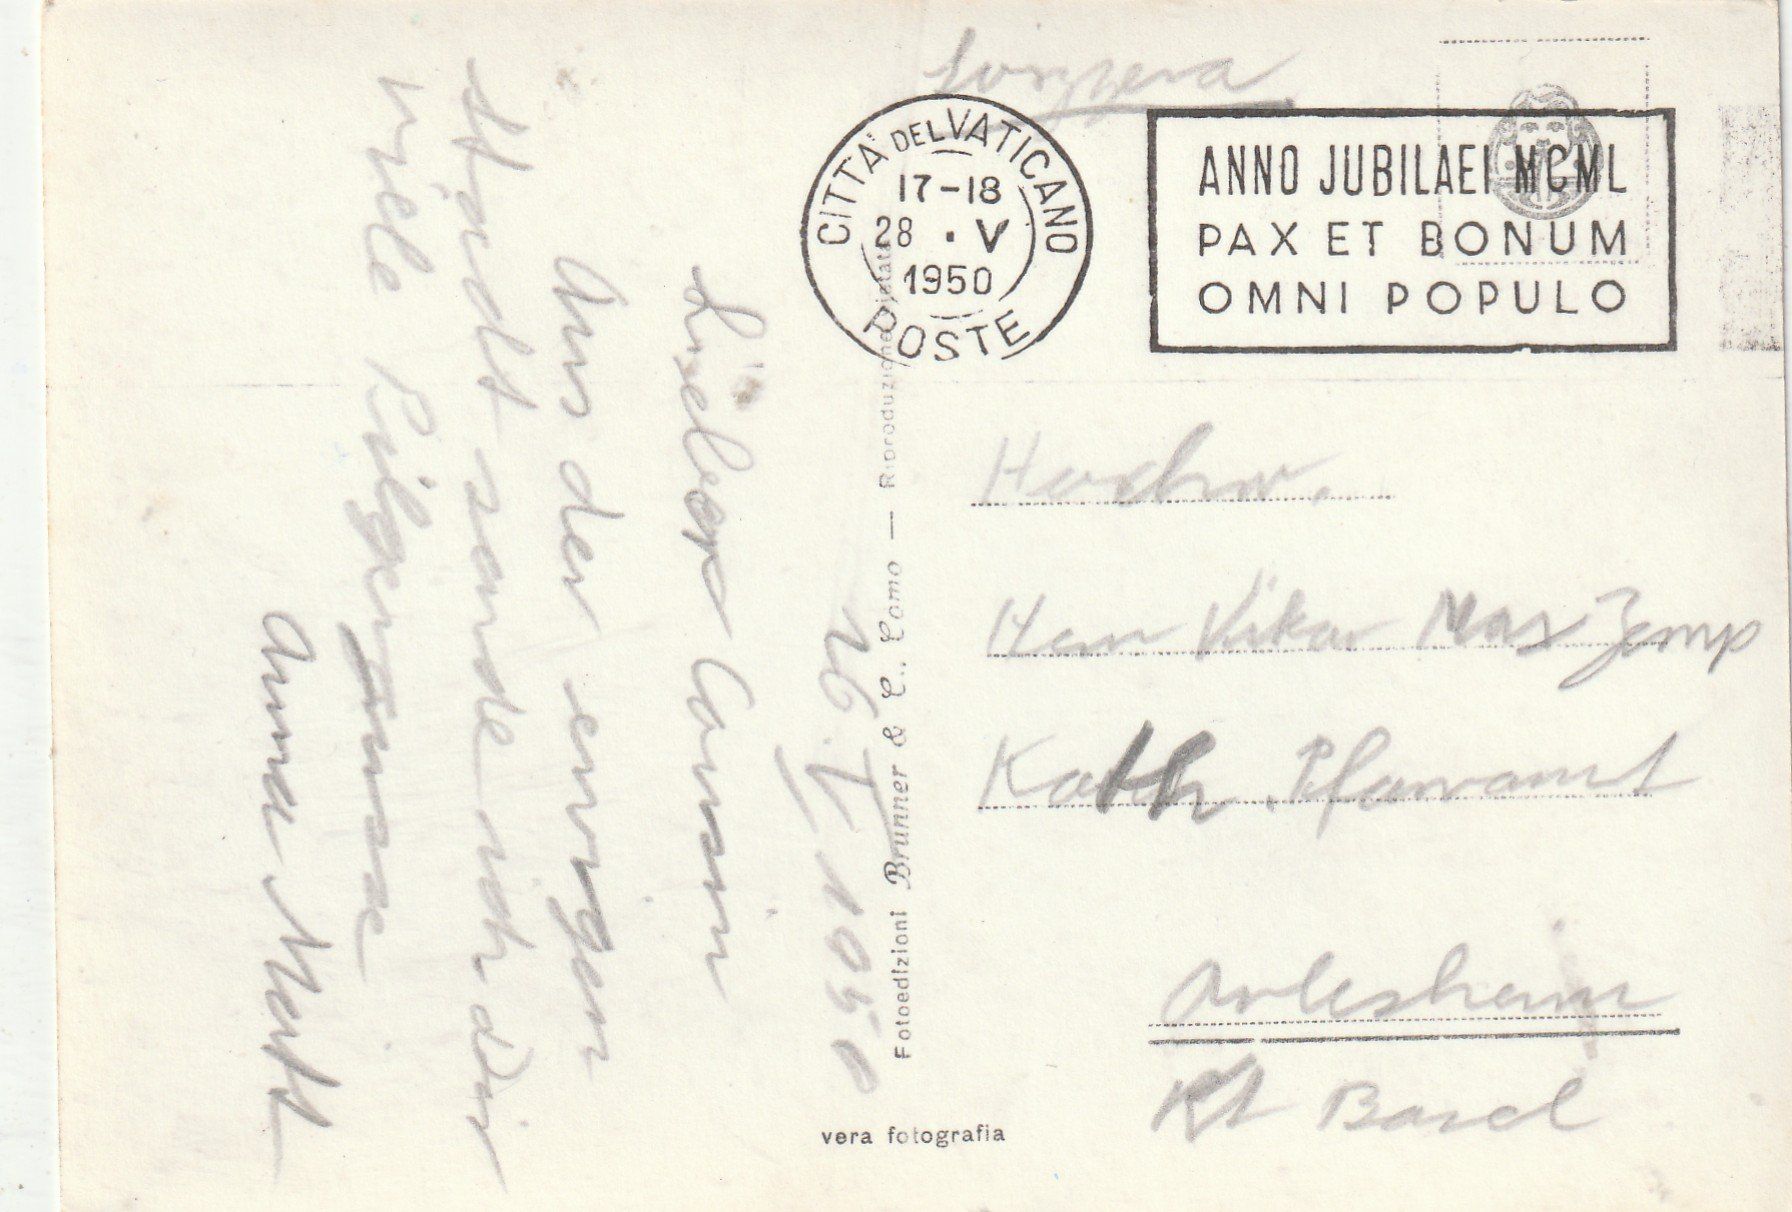 26. V 1950
Lieber Cousin
Aus der ewigen
Stadt sende ich dir
viele Pilgergrüsse
Anna Mart
CITTÀ DEL VATICANO
17-18
28 . V
1950
POSTE
ANNO JUBILAEI MCML
PAX ET BONUM
OMNI POPULO
Hochw.
Herrn Vikar Max Zemp
Kath. Pfarramt
Arlesheim
Kt Basel
Fotoedizioni Brunner & C., Como — Riproduzione vietata
vera fotografia